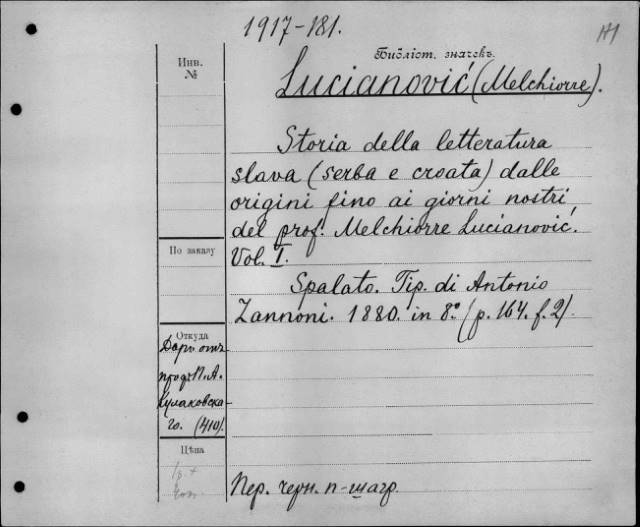 1917-181.
Библіот. значекъ.
Инв.
№
Lucianović (Melchiorre).
Storia della letteratura
slava (serba e croata) dalle
origini fino ai giorni nostri
del prof. Melchiorre Lucianović.
По заказу
Vol. I.
Spalato. Tip. di Antonio
Zannoni. 1880. in 8º (p. 164. f. 2).
Откуда
Даръ отъ
проф. П. А.
Кулаковска-
го. (410).
Цѣна
Пер. черн. п-шагр.